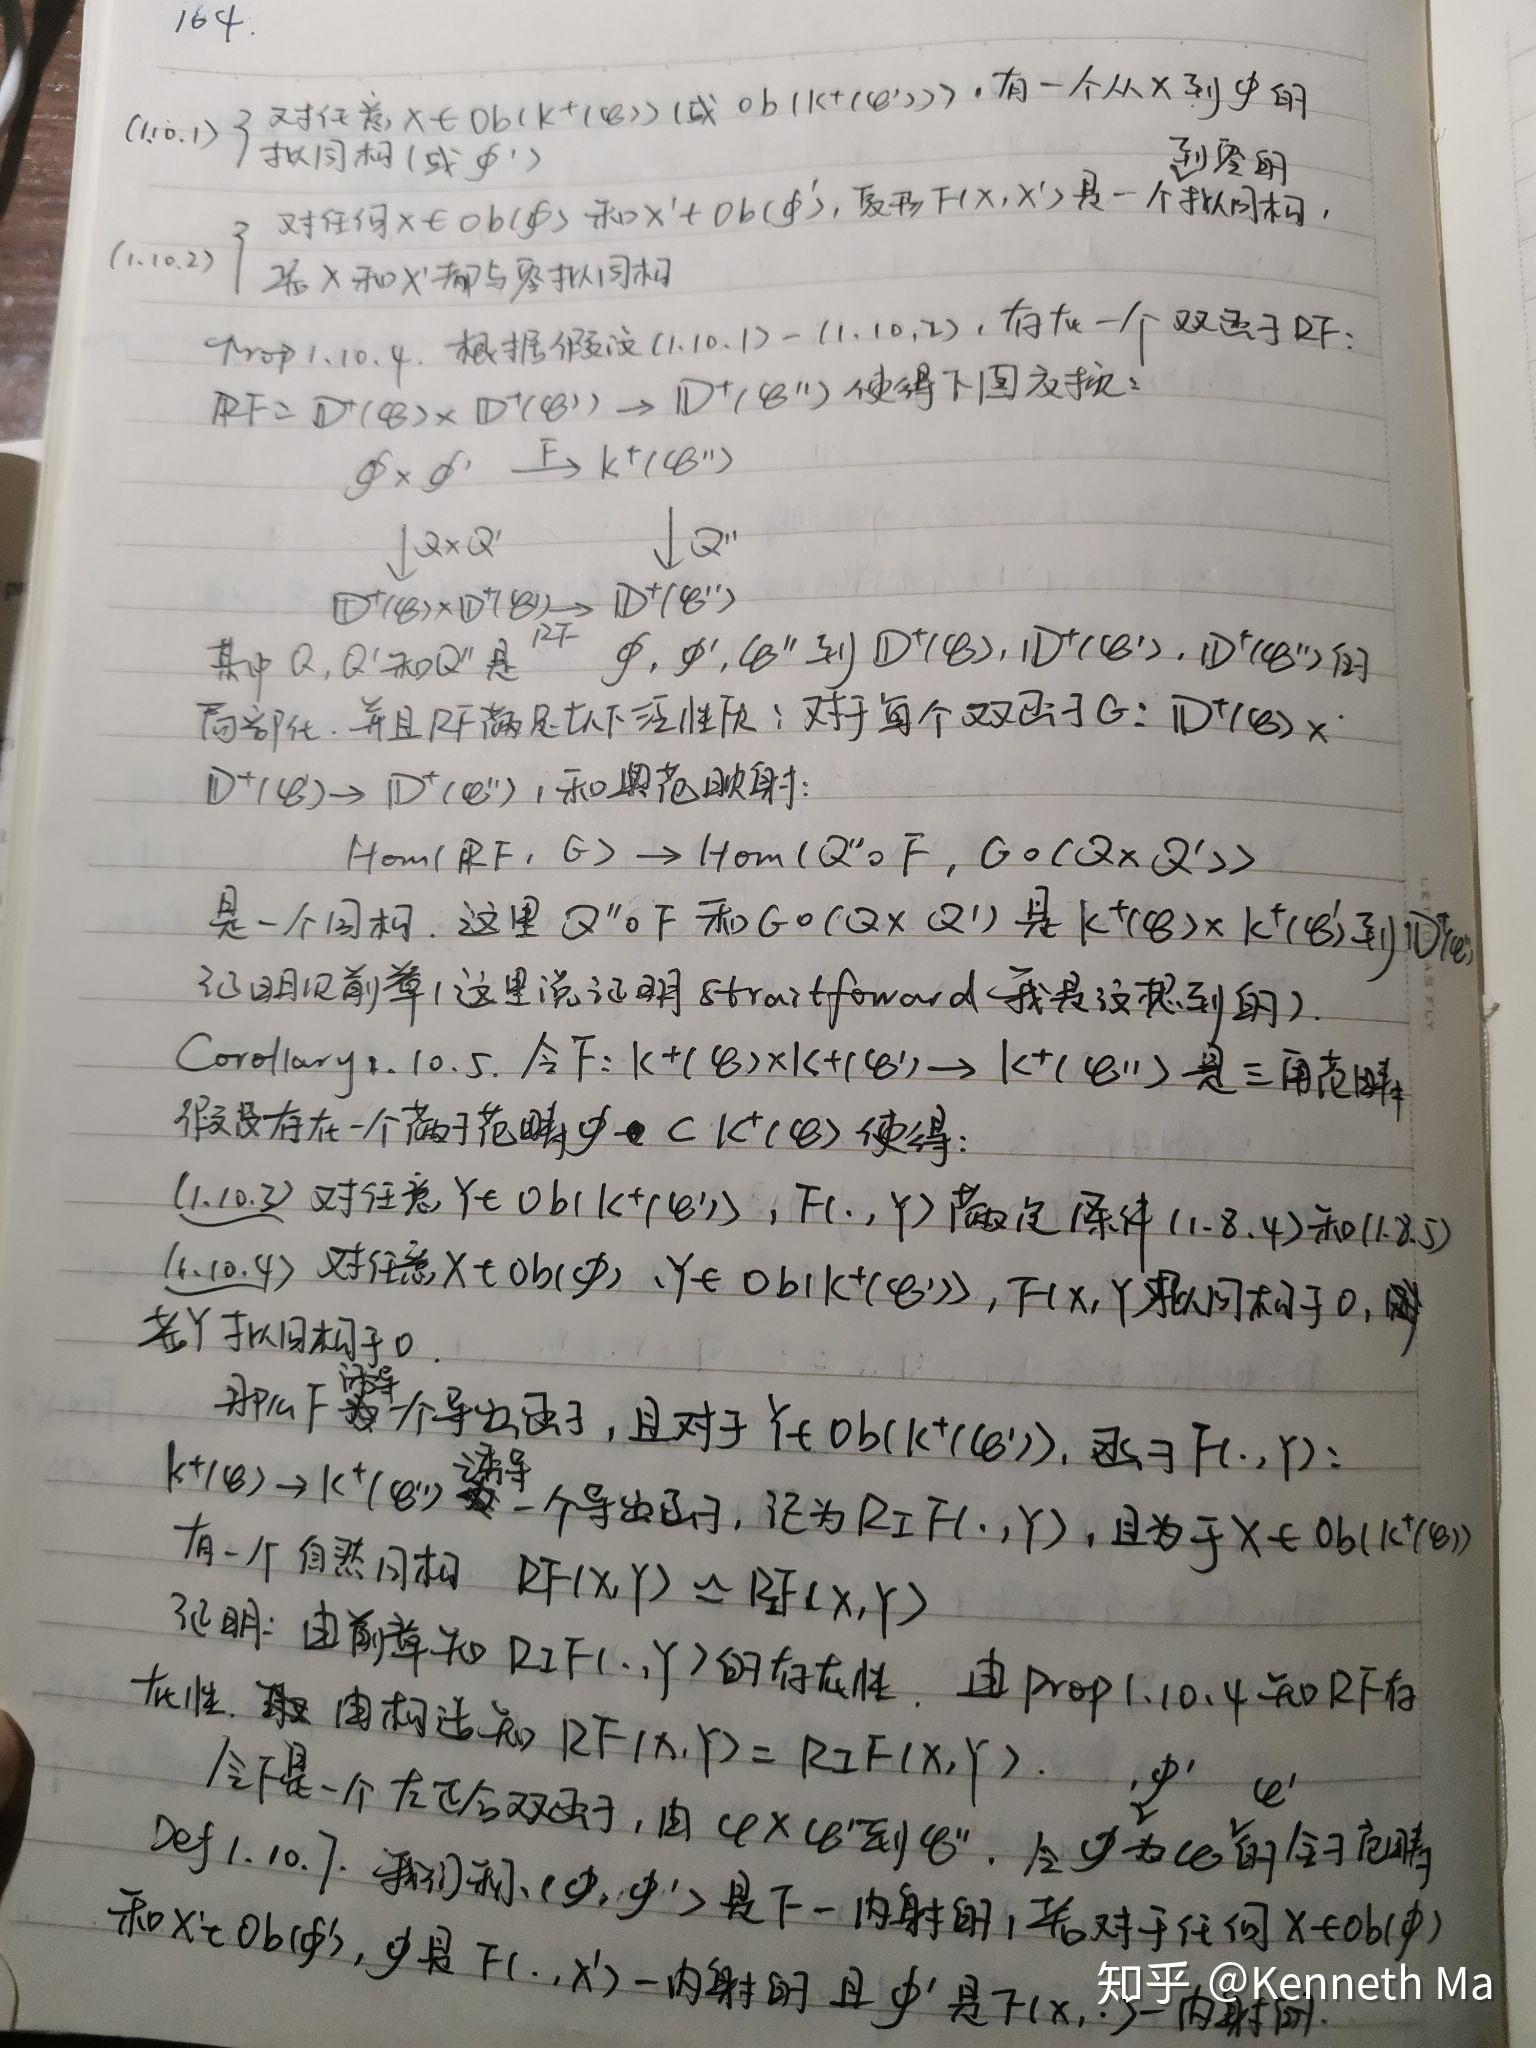 164.
(1.10.1) { 对任意 X∈Ob(K⁺(𝒞)) (或 Ob(K⁺(𝒞'))), 有一个从 X 到 𝒥 的
拟同构 (或 𝒥')
到零的
(1.10.2) { 对任何 X∈Ob(𝒥) 和 X'∈Ob(𝒥'), 复形 F(X, X') 是一个拟同构,
若 X 和 X' 都与零拟同构
Prop 1.10.4. 根据假设 (1.10.1) - (1.10.2), 存在一个双函子 RF:
RF = D⁺(𝒞) × D⁺(𝒞') → D⁺(𝒞'') 使得下图交换:
𝒥 × 𝒥' —F→ K⁺(𝒞'')
↓ Q×Q' ↓ Q''
D⁺(𝒞)×D⁺(𝒞') → D⁺(𝒞'')
RF
其中 Q, Q' 和 Q'' 是 𝒥, 𝒥', 𝒞'' 到 D⁺(𝒞), D⁺(𝒞'), D⁺(𝒞'') 的
局部化. 并且 RF 满足以下泛性质: 对于每个双函子 G: D⁺(𝒞) ×
D⁺(𝒞') → D⁺(𝒞''), 和典范映射:
Hom(RF, G) → Hom(Q''∘F, G∘(Q×Q'))
是一个同构. 这里 Q''∘F 和 G∘(Q×Q') 是 K⁺(𝒞)×K⁺(𝒞') 到 D⁺(𝒞'')
证明见前章, (这里说证明 straitfoward 我是没想到的).
Corollary 1.10.5. 令 F: K⁺(𝒞)×K⁺(𝒞') → K⁺(𝒞'') 是三角范畴
假设存在一个满子范畴 𝒥 ⊂ K⁺(𝒞) 使得:
(1.10.3) 对任意 Y∈Ob(K⁺(𝒞')), F(·, Y) 满足条件 (1.8.4) 和 (1.8.5)
(1.10.4) 对任意 X∈Ob(𝒥), Y∈Ob(K⁺(𝒞')), F(X, Y) 拟同构于 0,
若 Y 拟同构于 0.
诱导
那么 F 一个导出函子, 且对于 Y∈Ob(K⁺(𝒞')), 函子 F(·, Y):
诱导
K⁺(𝒞) → K⁺(𝒞'') 一个导出函子, 记为 R_I F(·, Y), 且对于 X∈Ob(K⁺(𝒞))
有一个自然同构 RF(X, Y) ≃ R_I F(X, Y)
证明: 由前章知 R_I F(·, Y) 的存在性. 由 Prop 1.10.4 知 RF 存
在性. 由构造知 RF(X, Y) = R_I F(X, Y).
, 𝒥' 𝒞'
令 F 是一个左正合双函子, 由 𝒞×𝒞' 到 𝒞''. 令 𝒥 为 𝒞 的全子范畴
Def 1.10.7. 我们称 (𝒥, 𝒥') 是 F-内射的, 若对于任何 X∈Ob(𝒥)
和 X'∈Ob(𝒥'), 𝒥 是 F(·, X')-内射的 且 𝒥' 是 F(X, ·)-内射的.
知乎 @Kenneth Ma